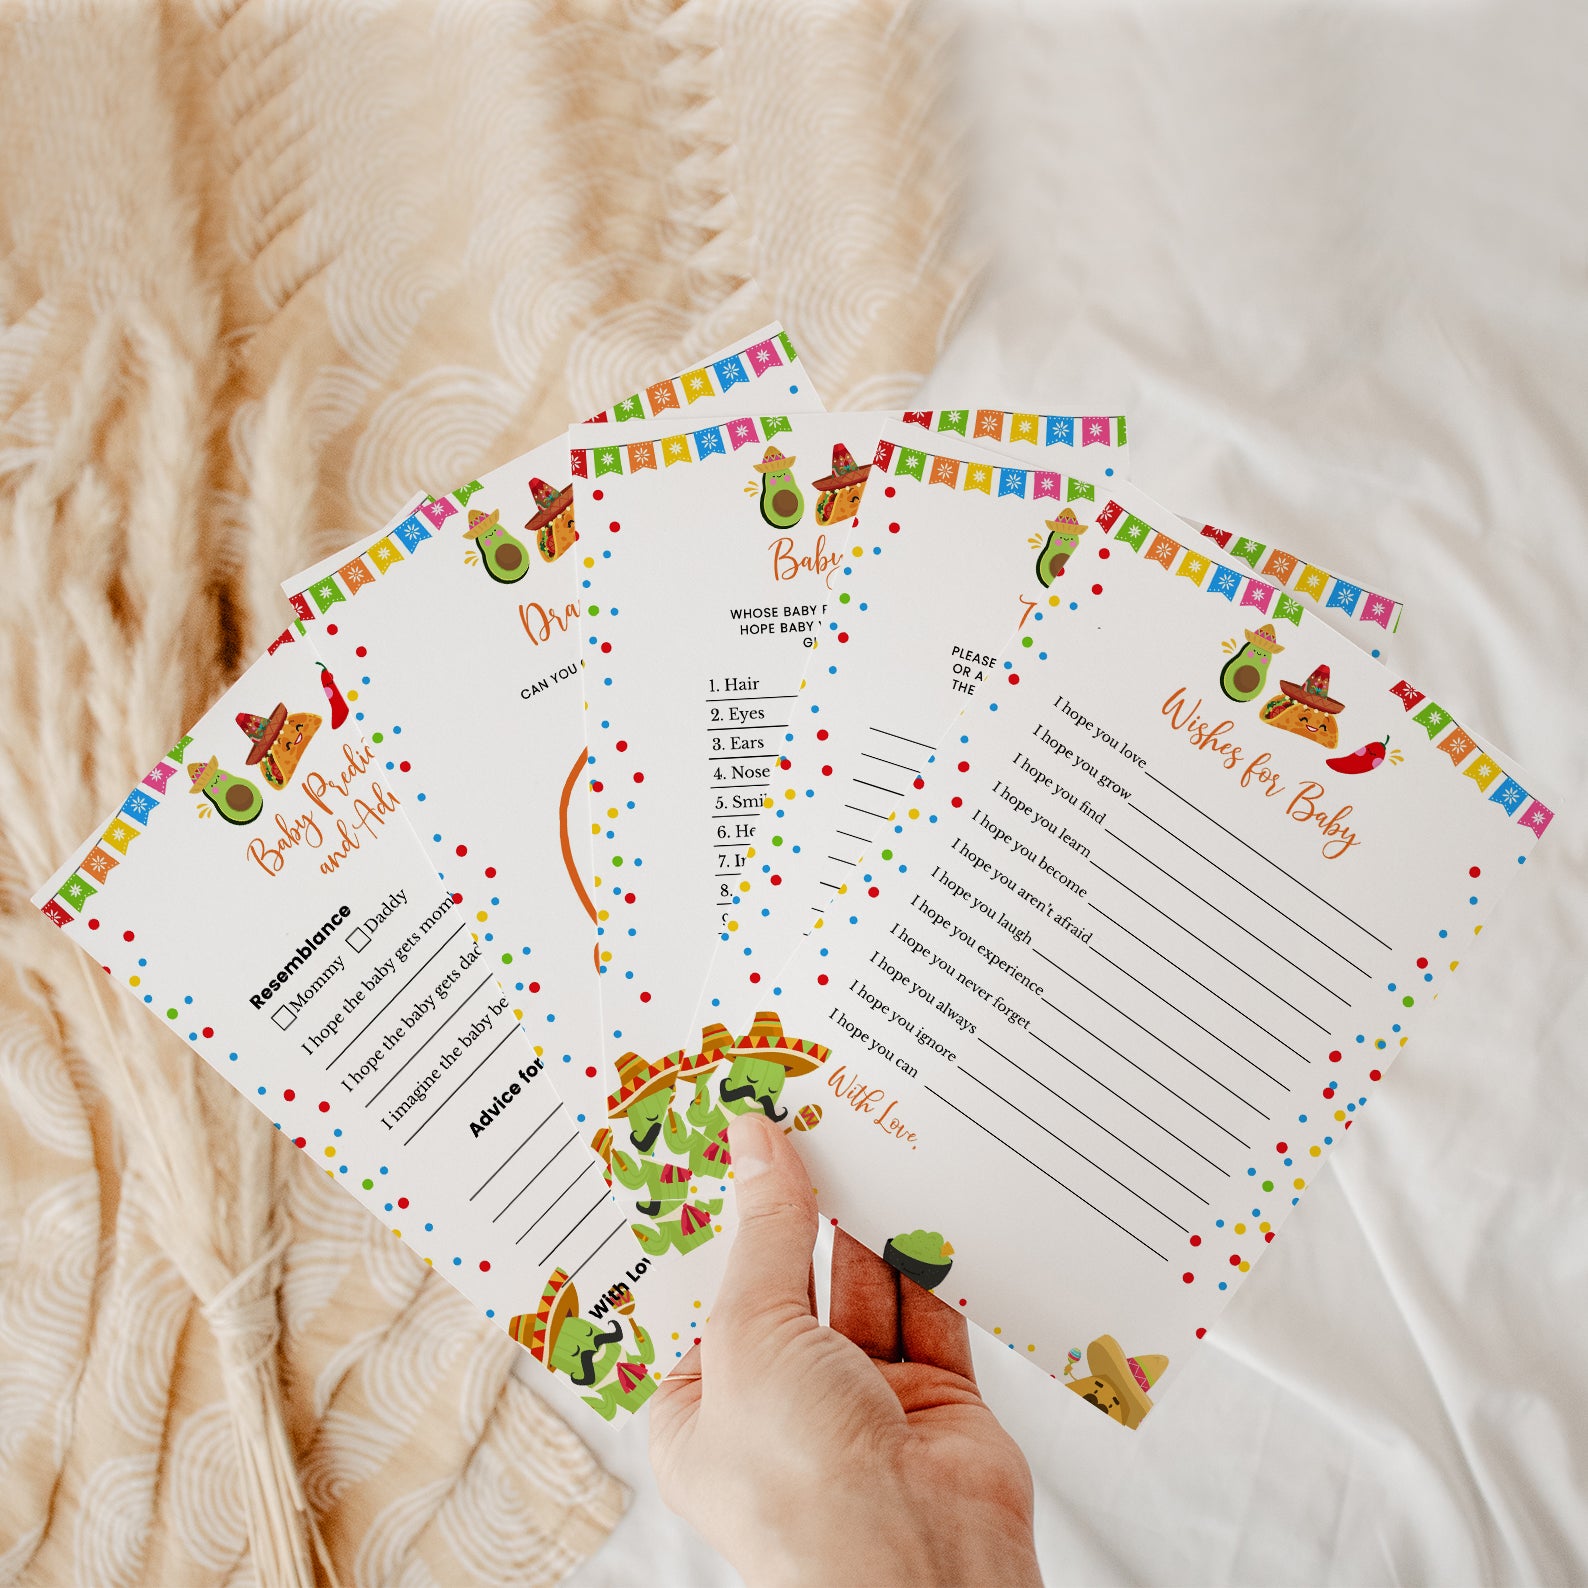 Baby
and
Resemblance
Mommy Daddy
I hope the baby gets mom
I hope the baby gets
I imagine the baby be
Advice for
With
CAN YOU
Baby
WHOSE BABY
HOPE BABY
1. Hair
2. Eyes
3. Ears
4. Nose
5.
6.
7.
8.
PLEASE
OR A
THE
Wishes for Baby
I hope you love
I hope you grow
I hope you find
I hope you learn
I hope you become
I hope you aren't afraid
I hope you laugh
I hope you experience
I hope you never forget
I hope you always
I hope you ignore
I hope you can
With Love,